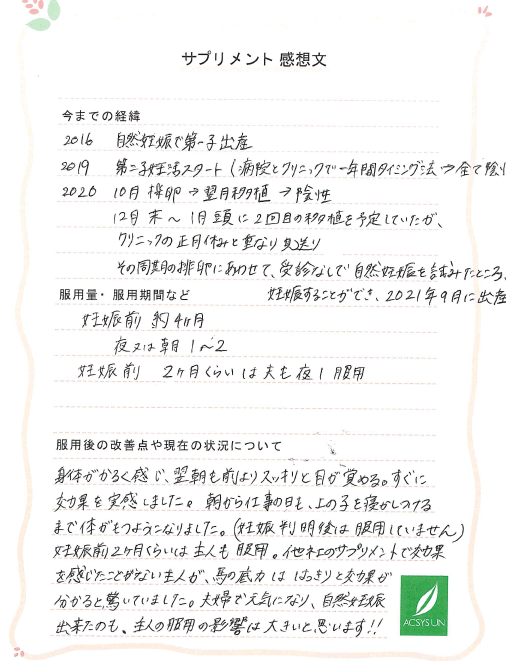 サプリメント 感想文
今までの経緯
2016 自然妊娠で第一子出産
2019 第二子妊活スタート(病院とクリニックで一年間タイミング法→全て陰性
2020 10月 採卵→翌月移植→陰性
12月末〜1月頭に2回目の移植を予定していたが、
クリニックの正月休みと重なり見送り
その同周期の排卵にあわせて、受診なしで自然妊娠を試みたところ、
妊娠することができ、2021年9月に出産
服用量・服用期間など
妊娠前 約4ヶ月
夜又は朝 1〜2
妊娠前 2ヶ月くらいは夫も夜1服用
服用後の改善点や現在の状況について
身体がかるく感じ、翌朝も前よりスッキリと目が覚める。すぐに
効果を実感しました。朝から仕事の日も、上の子を寝かしつける
まで体がもつようになりました。(妊娠判明後は服用していません)
妊娠前2ヶ月くらいは主人も服用。他社のサプリメントで効果
を感じたことがない主人が、馬の底力ははっきりと効果が
分かると驚いていました。夫婦で元気になり、自然妊娠
出来たのも、主人の服用の影響は大きいと思います!!
ACSYSUN